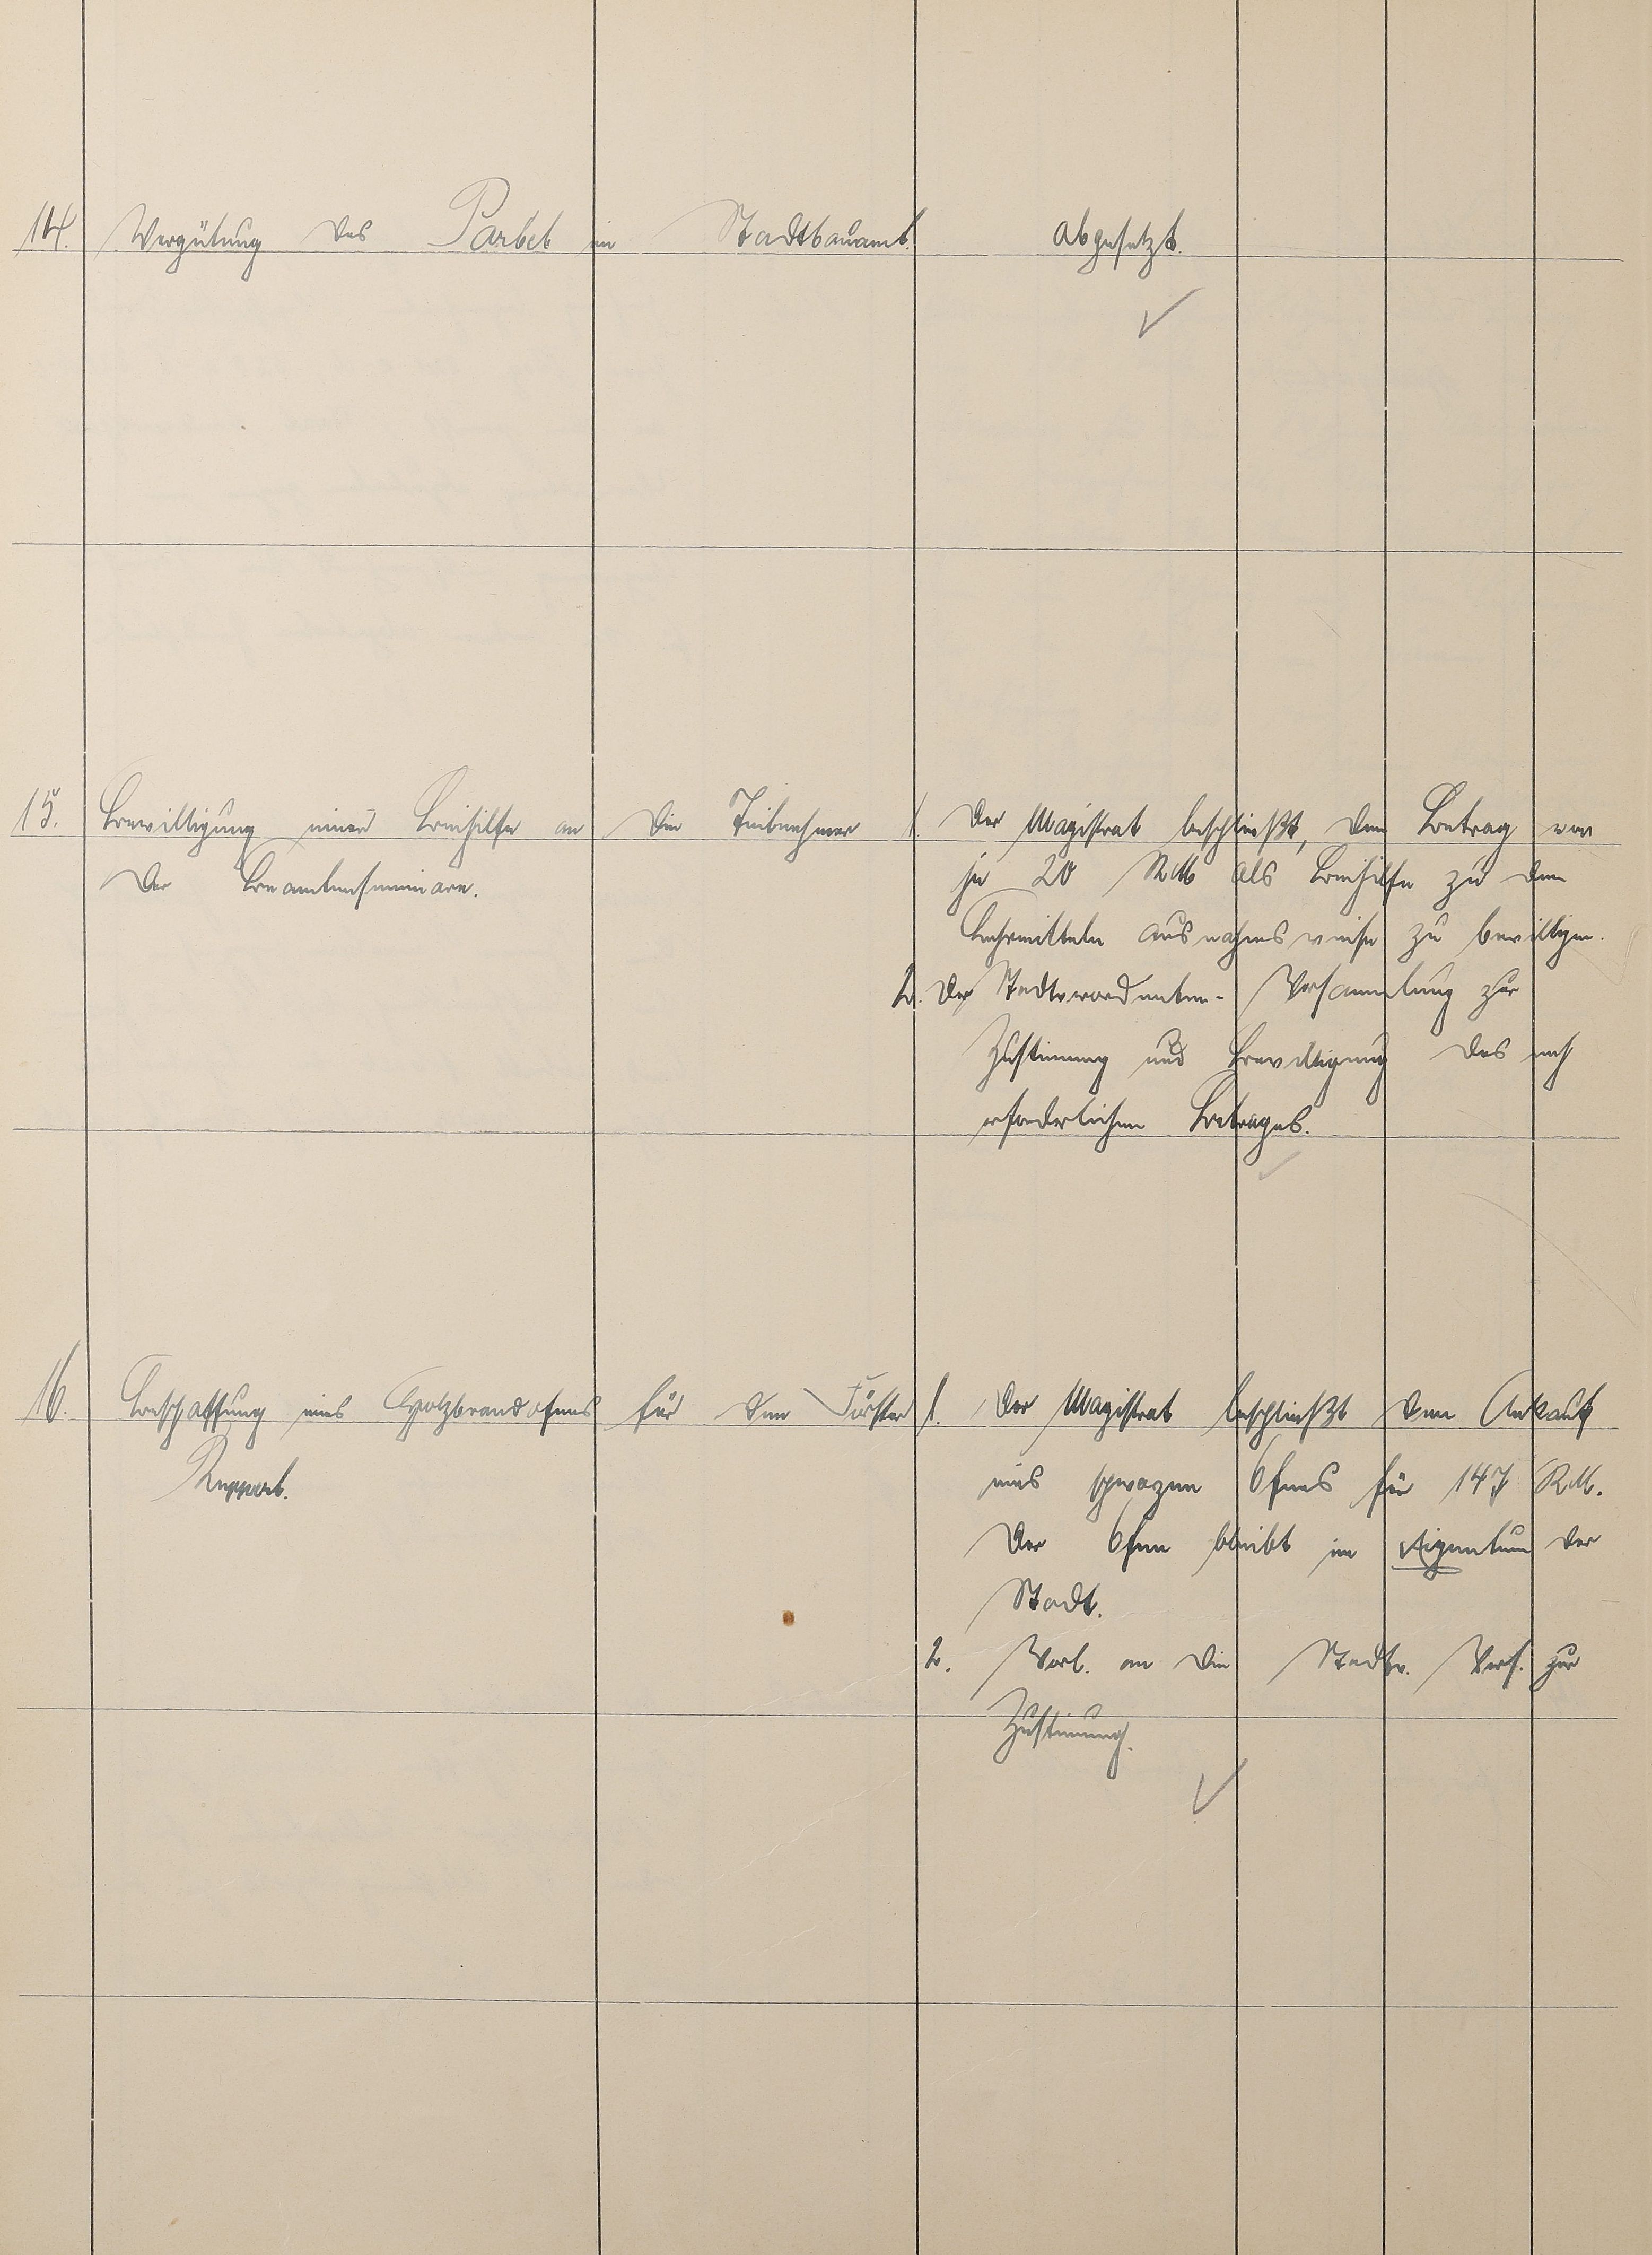 14. Vergütung des Parbel im Stadtbauamt. abgesetzt.
15. Bewilligung einer Beihilfe an die Teilnehmer
der Beamtenseminare.
1. Der Magistrat beschließt, den Betrag von
je 20 RM als Beihilfe zu den
Lehrmitteln ausnahmsweise zu bewilligen.
2. Der Stadtverordneten-Versammlung zur
Zustimmung und Bewilligung des noch
erforderlichen Betrages.
16. Beschaffung eines Holzbrandofens für den Förster
Ruppert.
1. Der Magistrat beschließt den Ankauf
eines schwarzen Ofens für 147 RM.
Der Ofen bleibt im Eigentum der
Stadt.
2. Vorl. an die Stadtv. Vers. zur
Zustimmung.